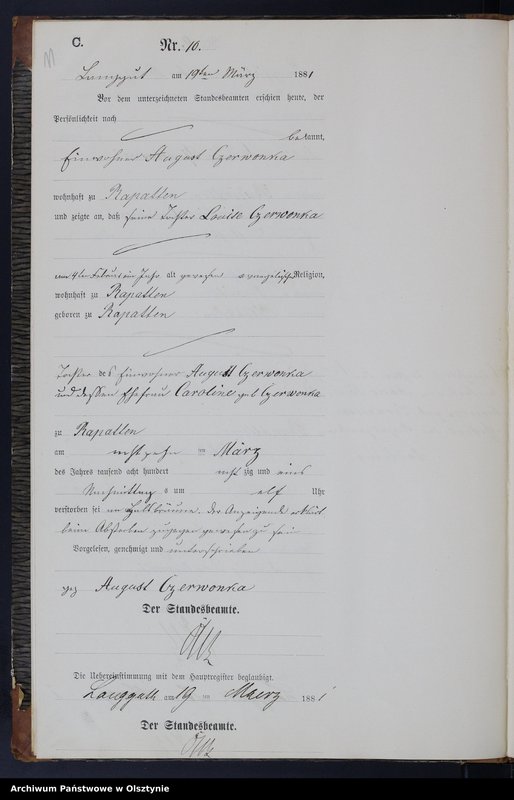 C.
Nr. 10.
Langgut am 19ten März 1881
Vor dem unterzeichneten Standesbeamten erschien heute, der
Persönlichkeit nach
bekannt,
Einwohner August Czerwonka
wohnhaft zu Rapatten
und zeigte an, daß seine Tochter Louise Czerwonka
am 4ten Februar ein Jahr alt gewesen evangelischer Religion,
wohnhaft zu Rapatten
geboren zu Rapatten
Tochter des Einwohner August Czerwonka
und dessen Ehefrau Caroline geb Czerwonka
zu Rapatten
am achtzehn im März
des Jahres tausend acht hundert acht zig und eins
Nachmittag s um elf Uhr
verstorben sei an Halsbräune. Der Anzeigende erklärt
beim Absterben zugegen gewesen zu sein
Vorgelesen, genehmigt und unterschrieben
gez August Czerwonka
Der Standesbeamte.
Die Uebereinstimmung mit dem Hauptregister beglaubigt.
Langguth am 19 im Maerz 1881
Der Standesbeamte.
Archiwum Państwowe w Olsztynie